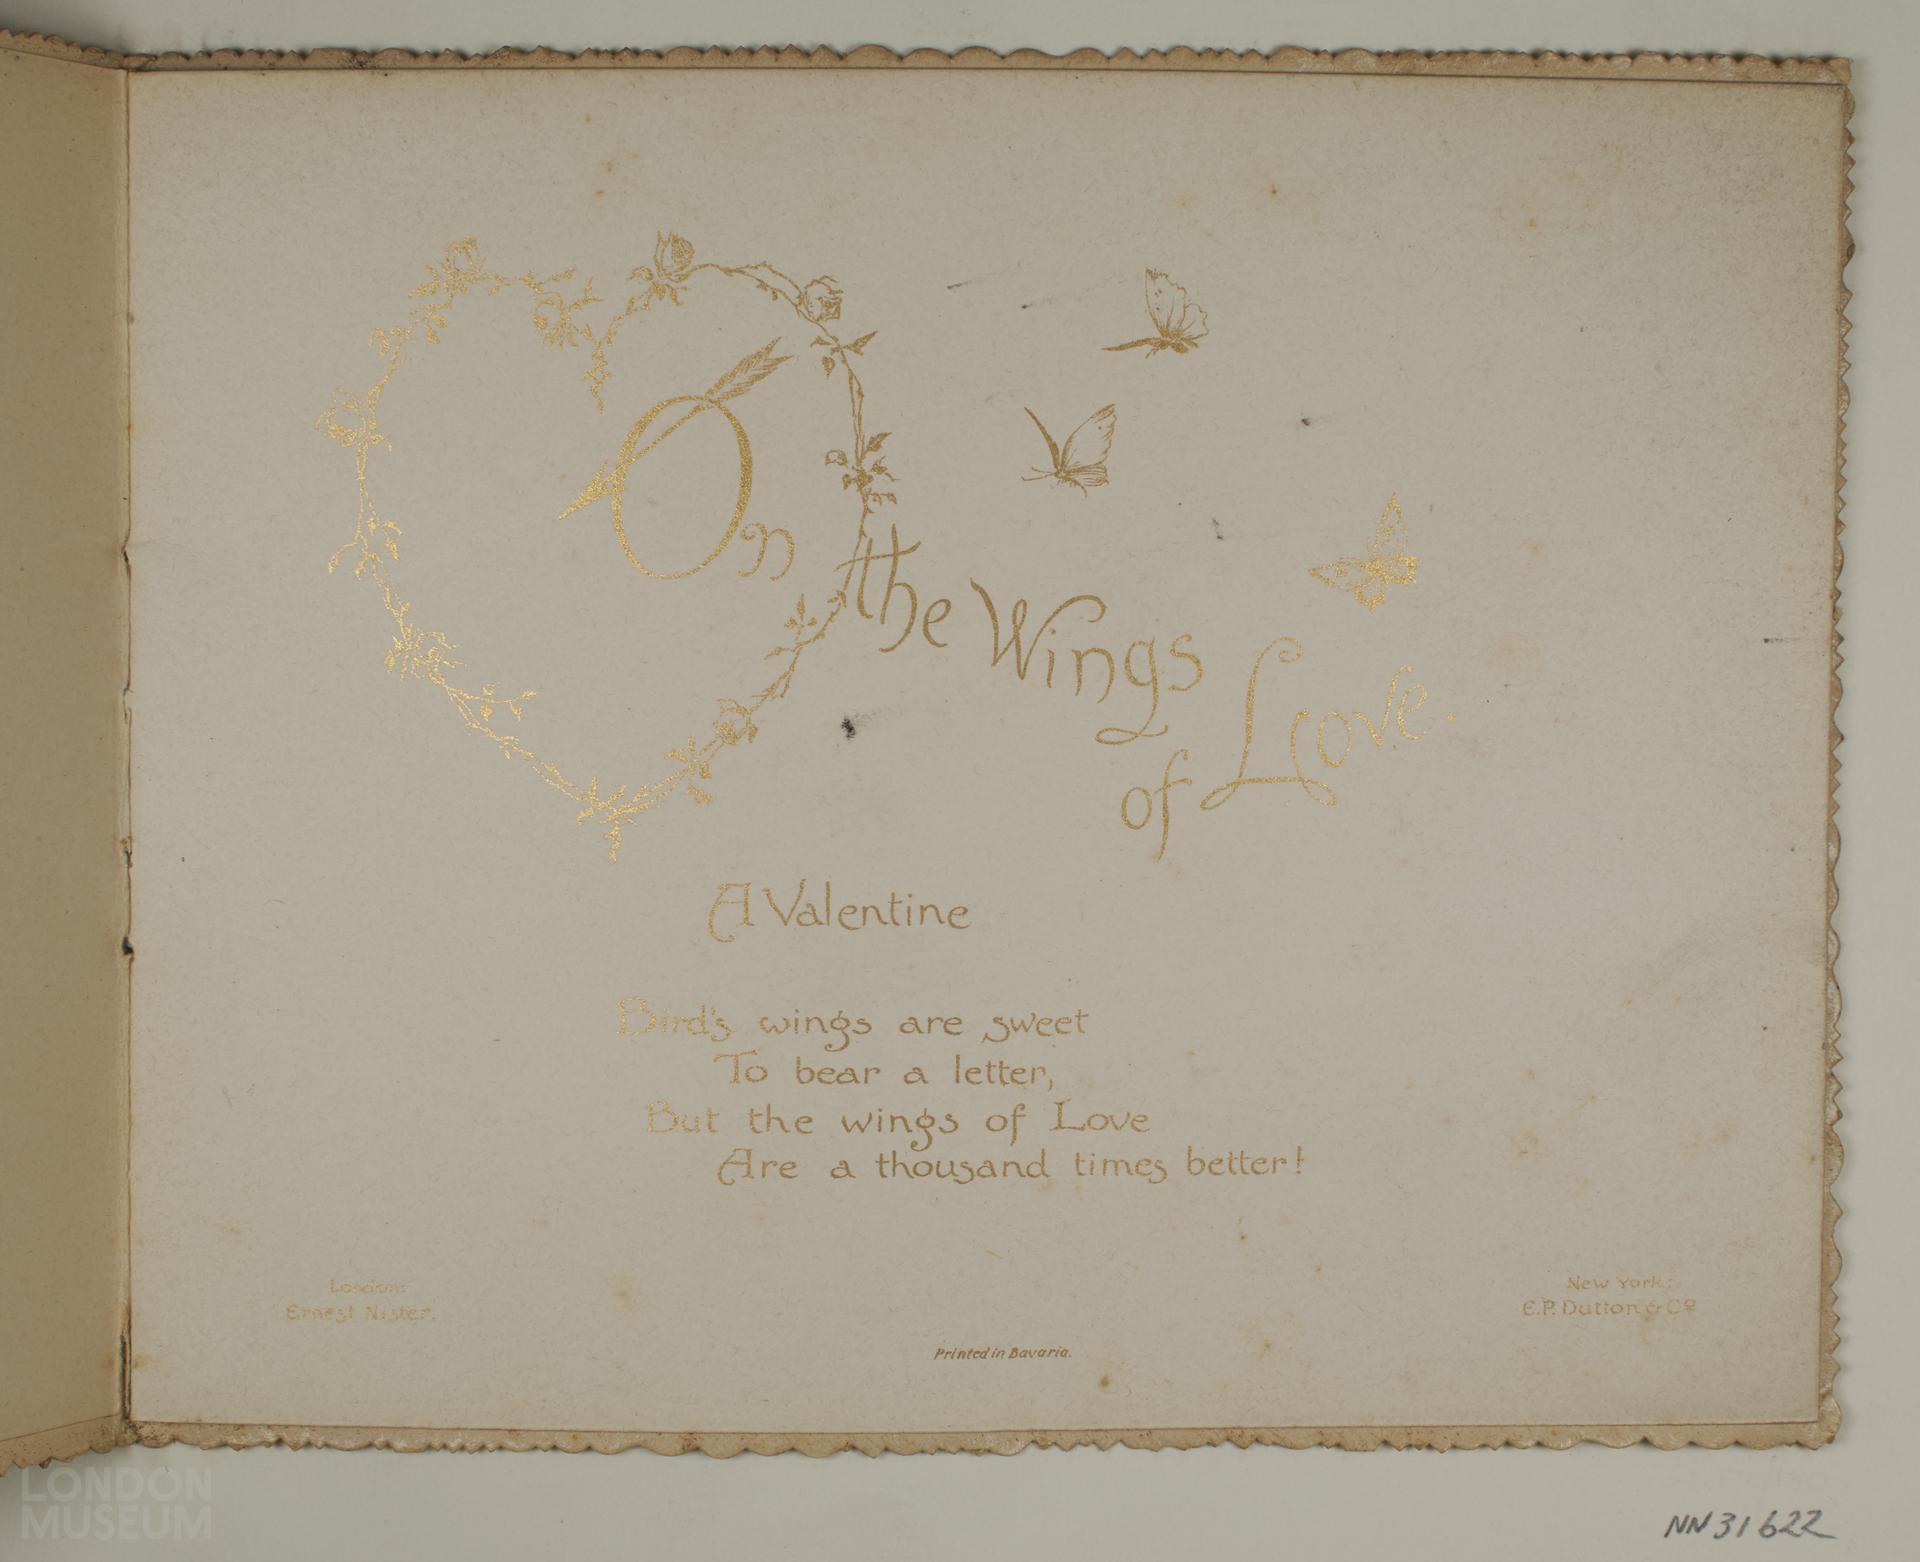 On the Wings
of Love.
A Valentine
Bird's wings are sweet
To bear a letter,
But the wings of Love
Are a thousand times better!
London:
Ernest Nister.
New York:
E.P. Dutton & Co
Printed in Bavaria.
LONDON
MUSEUM
NN31622